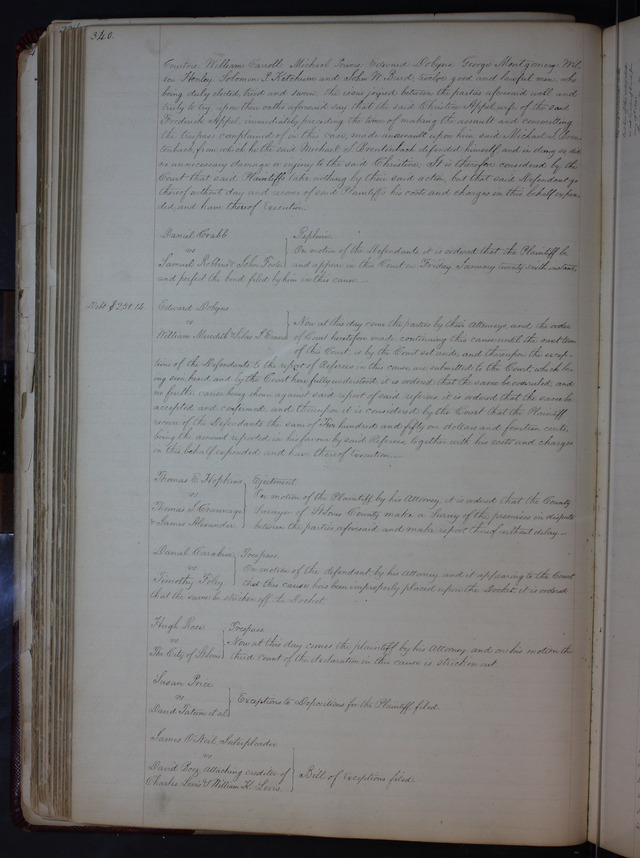 340.
William Carroll Michael Edward Dobyns George Montgomery Wil-
son Henley Solomon P. Ketchum and John W. Burd, twelve good and lawful men, who
being duly elected, tried and sworn the issue joined between the parties aforesaid well and
truly to try, upon their oaths aforesaid say that the said Christine Appel wife of the said
Frederick Appel, immediately preceding the time of making the assault and committing
the trespass complained of in this case, made an assault upon him said Michael S.
from which he the said Michael S. defended himself, and in doing so did
no unnecessary damage or injury to the said Christine. It is therefore considered by the
Court that said Plaintiffs take nothing by their said action, but that said Defendant go
thereof without day and recover of said Plaintiffs his costs and charges in this behalf expen-
ded, and have thereof Execution.
Daniel Crabb
vs
Samuel Robbins & John Foster
Replevin
On motion of the Defendants it is ordered that the Plaintiff be
and appear in this Court on Friday January twenty sixth instant,
and perfect the bond filed by him in this cause.
Debt $251.14.
Edward Dobyns
vs
William Meredith & Silas P.
Now at this day come the parties by their Attorneys, and the order
of Court heretofore made continuing this cause until the next term
of this Court, is by the Court set aside, and thereupon the excep-
tions of the Defendants to the report of Referees in this cause are submitted to the Court, which be-
ing seen heard and by the Court here fully understood it is ordered that the same be overruled, and
no further cause being shown against said report of said referees, it is ordered that the same be
accepted and confirmed, and thereupon it is considered by the Court that the Plaintiff
recover of the Defendants the sum of Two hundred and fifty one dollars and fourteen cents,
being the amount reported in his favour by said Referees, together with his costs and charges
in this behalf expended and have thereof Execution.
Thomas E. Hopkins
vs
Thomas J.
& James Alexander
Ejectment.
On motion of the Plaintiff by his Attorney, it is ordered that the County
Surveyor of St Louis County make a Survey of the premises in dispute
between the parties aforesaid and make report thereof without delay.
Daniel
vs
Timothy Foley
Trespass.
On motion of the defendant by his attorney and it appearing to the Court
that this cause has been improperly placed upon the Docket, it is ordered
that the same be stricken off the Docket.
Hugh Rose
vs
The City of St Louis
Trespass
Now at this day comes the plaintiff by his Attorney and on his motion the
third count of the declaration in this cause is stricken out.
Susan Price
vs
David Tatum et al
Exceptions to Depositions for the Plaintiff filed.
James O'Neil Interpleader
vs
David attaching creditor of
Charles Lewis & William H. Lewis.
Bill of Exceptions filed.